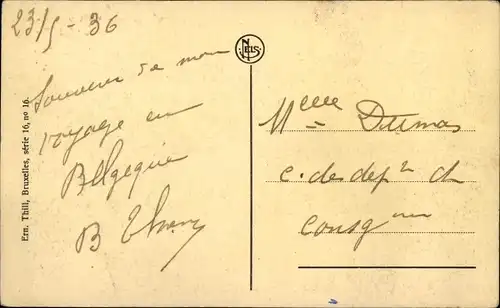 23/5 - 36
Souvenir de mon
voyage en
Belgique
B
NELS
Ern. Thill, Bruxelles, série 16, no 16.
Mlle Dumas
c. des dep